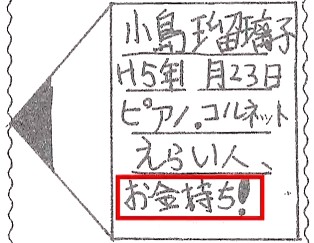 小島瑠璃子
H5年 月23日
ピアノ.コルネット
えらい人、
お金持ち!